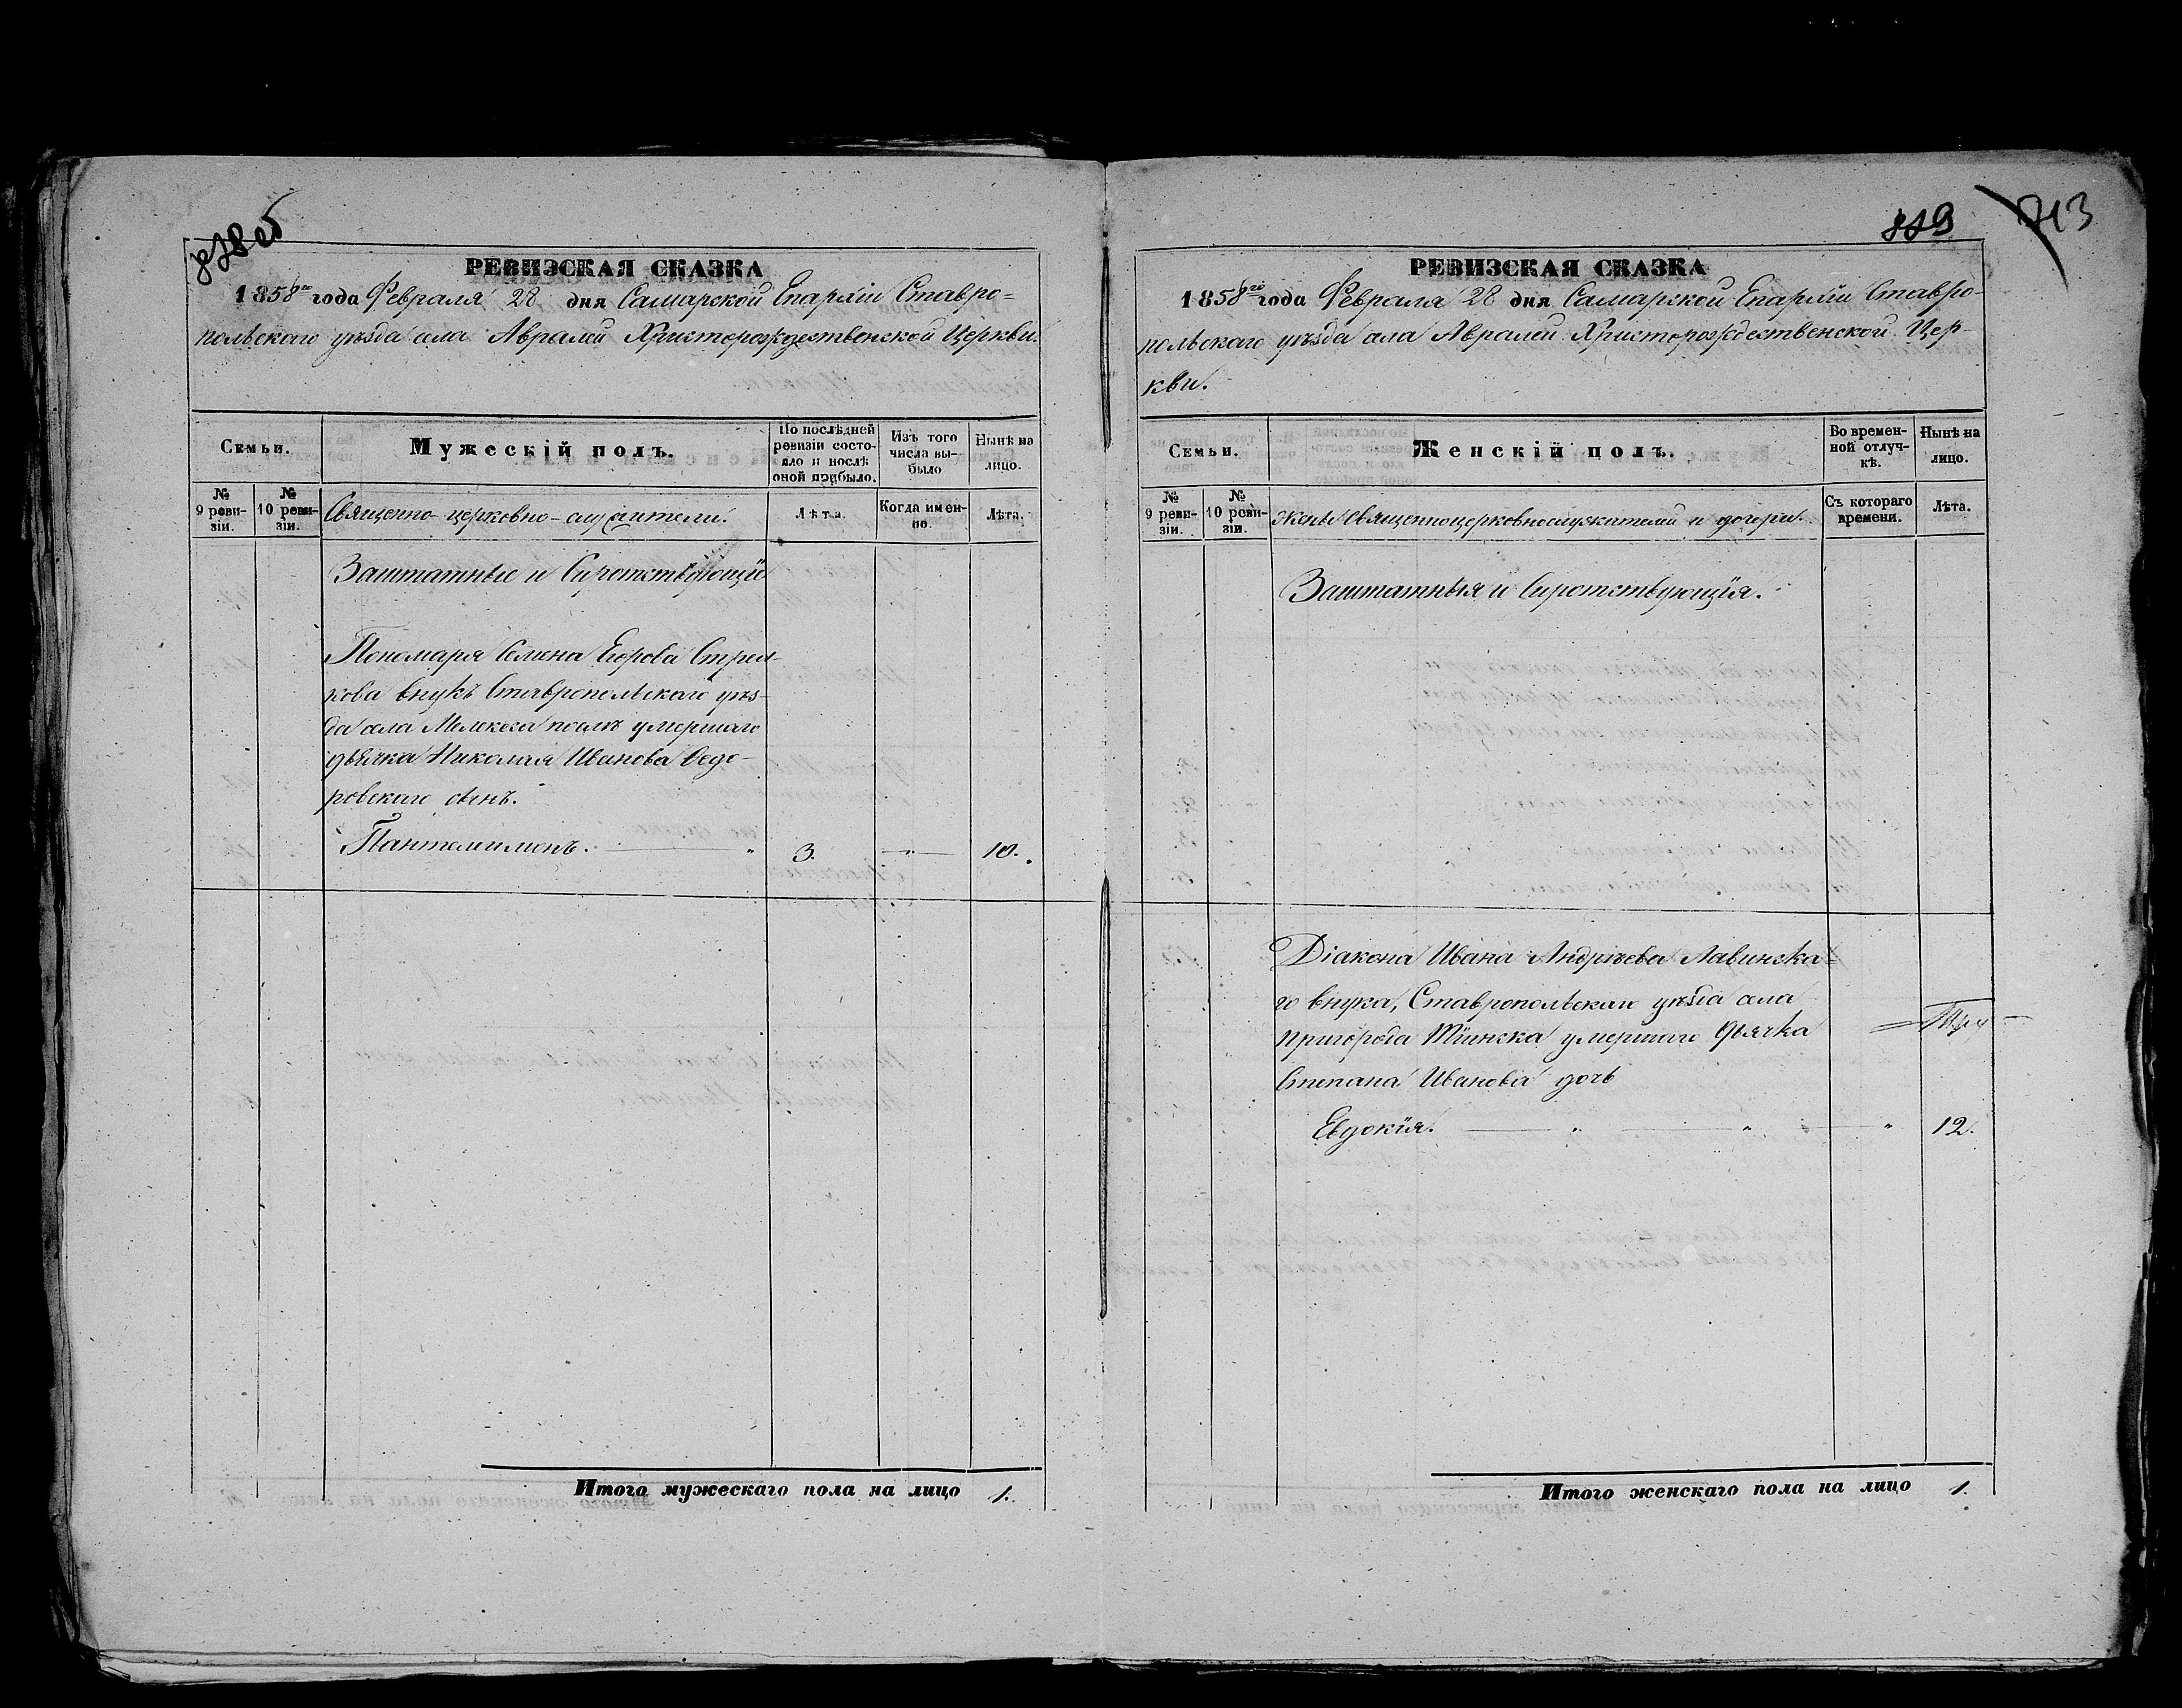 РЕВИЗСКАЯ СКАЗКА
1858го года Февраля 28 дня Самарской Епархіи Ставро=
польскаго уѣзда села Авралей Христорождественской Церкви.
Семьи.
Мужескій полъ.
По послѣдней ревизіи состояло и послѣ оной прибыло.
Изъ того числа выбыло
Нынѣ на лицо.
№ 9 ревизіи.
№ 10 ревизіи.
Священно-церковно-служители.
Лѣта.
Когда именно.
Лѣта.
Заштатные и Сиротствующіе
Пономаря Семена Егорова
кова внукъ Ставропольскаго уѣз-
да села Мелекеса послѣ умершаго
дьячка Николая Иванова Ѳедо-
ровскаго сынъ.
Пантелимонъ. 3. 10.
Итого мужескаго пола на лицо 1.
713
РЕВИЗСКАЯ СКАЗКА
1858го года Февраля 28 дня Самарской Епархіи Ставро-
польскаго уѣзда села Авралей Христорождественской Цер-
кви.
Семьи.
Женскій полъ.
Во временной отлучкѣ.
Нынѣ на лицо.
№ 9 ревизіи.
№ 10 ревизіи.
Жены Священноцерковнослужителей и дочери.
Съ котораго времени.
Лѣта.
Заштатныя и Сиротствующія.
Діакона Ивана Андрѣева Лавинска-
го внука, Ставропольскаго уѣзда села
пригорода Тіинска умершаго дьячка
Степана Иванова дочь
Евдокія. 12.
Итого женскаго пола на лицо 1.